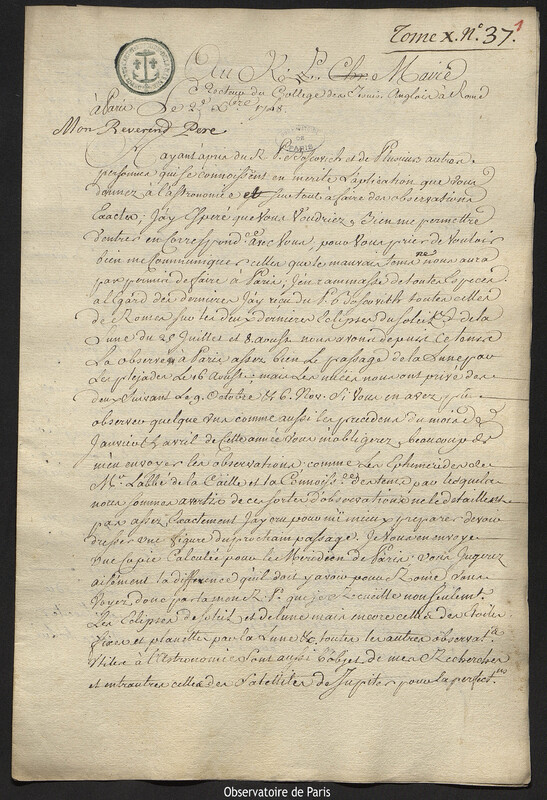 Tome X. N.° 37. 1
Au R. P. Chr. Maire
Recteur du College des Jesuis. Anglois à Rome
à Paris Le 2.e Xbre 1748
Mon Reverend Pere
PARIS
Ayant apris du R. P. Boscovich et de Plusieurs autres
personnes qui se connoissent en merite L'aplication que vous
donnez à L'astronomie et surtout à faire des observations
Exactes, J'ay Esperé que vous voudriez Bien me permettre
d'entrer en Correspond.ce avec vous, pour vous prier de vouloir
bien me Communiquer celles que le mauvais tems nous aura
pas permis de faire à Paris, J'en rammasse de toutes Especes
a Legard des dernieres J'ay reçu du P. Boscovith toutes celles
de Rome sur les deux dernieres Eclipses du soleil et de la
Lune du 25 Juillet et 8. aoust nous avons depuis ce tems
La observé à Paris assez bien Le passage de la Lune par
Les pleiades Le 16 Aoust mais Les nuées nous ont privé des
deux suivant Le 9. Octobre et 6. Nov. Si vous en avez pu
observer quelque une comme aussi Les precedens du mois de
Janvier et avril de Cette année vous m'obligerez beaucoup de
m'en envoyer Les observations comme Les Ephemerides de
M.r L'abbé de la Caille et la Connoiss.ce des tems par lesquelles
nous sommes avertis de ces sortes d'observations ne les detaillent
pas assez Exactement J'ay cru pour m'i mieux preparer devoir
dresser une figure du prochain passage. Je vous en envoye
une copie Calculée pour le Meridien de Paris vous Jugerez
aisément la difference qu'il doit y avoir pour Rome vous
Voyez donc par la mon R. P. que je Recueille non seulem.t
Les Eclipses de soleil et de lune mais encore celles des Etoiles
fixes et planettes par la Lune &c. toutes les autres observat.s
Utiles à L'astronomie sont aussi L'objet de mes Recherches
et entr'autres celles des Satellites de Jupiter pour la perfect.on
Observatoire de Paris